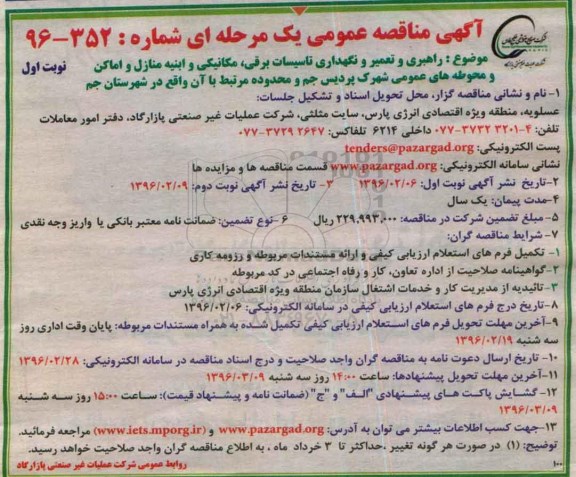 آگهی مناقصه عمومی یک مرحله ای شماره : ۳۵۲-۹۶
موضوع : راهبری و تعمیر و نگهداری تاسیسات برقی، مکانیکی و ابنیه منازل و اماکن
و محوطه های عمومی شهرک پردیس جم و محدوده مرتبط با آن واقع در شهرستان جم
نوبت اول
۱- نام و نشانی مناقصه گزار، محل تحویل اسناد و تشکیل جلسات:
عسلویه، منطقه ویژه اقتصادی انرژی پارس، سایت مثلثی، شرکت عملیات غیر صنعتی پازارگاد، دفتر امور معاملات
تلفن: ۴-۳۲۰۱ ۳۷۳۲-۰۷۷ داخلی ۶۲۱۴ تلفاکس: ۲۶۴۷ ۳۷۲۹-۰۷۷
پست الکترونیکی: tenders@pazargad.org
نشانی سامانه الکترونیکی: www.pazargad.org قسمت مناقصه ها و مزایده ها
۲-تاریخ نشر آگهی نوبت اول: ۱۳۹۶/۰۲/۰۶ ۳- تاریخ نشر آگهی نوبت دوم: ۱۳۹۶/۰۲/۰۹
۴-مدت پیمان: یک سال
۵- مبلغ تضمین شرکت در مناقصه: ۲۲۹,۹۹۳,۰۰۰ ریال ۶ -نوع تضمین: ضمانت نامه معتبر بانکی یا واریز وجه نقدی
۷- شرایط مناقصه گران:
۱- تکمیل فرم های استعلام ارزیابی کیفی و ارائه مستندات مربوطه و رزومه کاری
۲-گواهینامه صلاحیت از اداره تعاون، کار و رفاه اجتماعی در کد مربوطه
۳- تائیدیه از مدیریت کار و خدمات اشتغال سازمان منطقه ویژه اقتصادی انرژی پارس
۸-تاریخ درج فرم های استعلام ارزیابی کیفی در سامانه الکترونیکی: ۱۳۹۶/۰۲/۰۶
۹-آخرین مهلت تحویل فرم های استعلام ارزیابی کیفی تکمیل شده به همراه مستندات مربوطه: پایان وقت اداری روز
سه شنبه ۱۳۹۶/۰۲/۱۹
۱۰- تاریخ ارسال دعوت نامه به مناقصه گران واجد صلاحیت و درج اسناد مناقصه در سامانه الکترونیکی: ۱۳۹۶/۰۲/۲۸
۱۱-آخرین مهلت تحویل پیشنهادها: ساعت ۱۴:۰۰ روز سه شنبه ۱۳۹۶/۰۳/۰۹
۱۲- گشایش پاکت های پیشنهادی "الف" و "ج" (ضمانت نامه و پیشنهاد قیمت): ساعت ۱۵:۰۰ روز سه شنبه
۱۳۹۶/۰۳/۰۹
۱۳-جهت کسب اطلاعات بیشتر می توان به آدرس: www.pazargad.org و (www.iets.mporg.ir) مراجعه فرمائید.
توضیح: (۱) در صورت هر گونه تغییر ،حداکثر تا ۳ خرداد ماه ، به اطلاع مناقصه گران واجد صلاحیت خواهد رسید.
روابط عمومی شرکت عملیات غیر صنعتی پازارگاد
۱۰۰